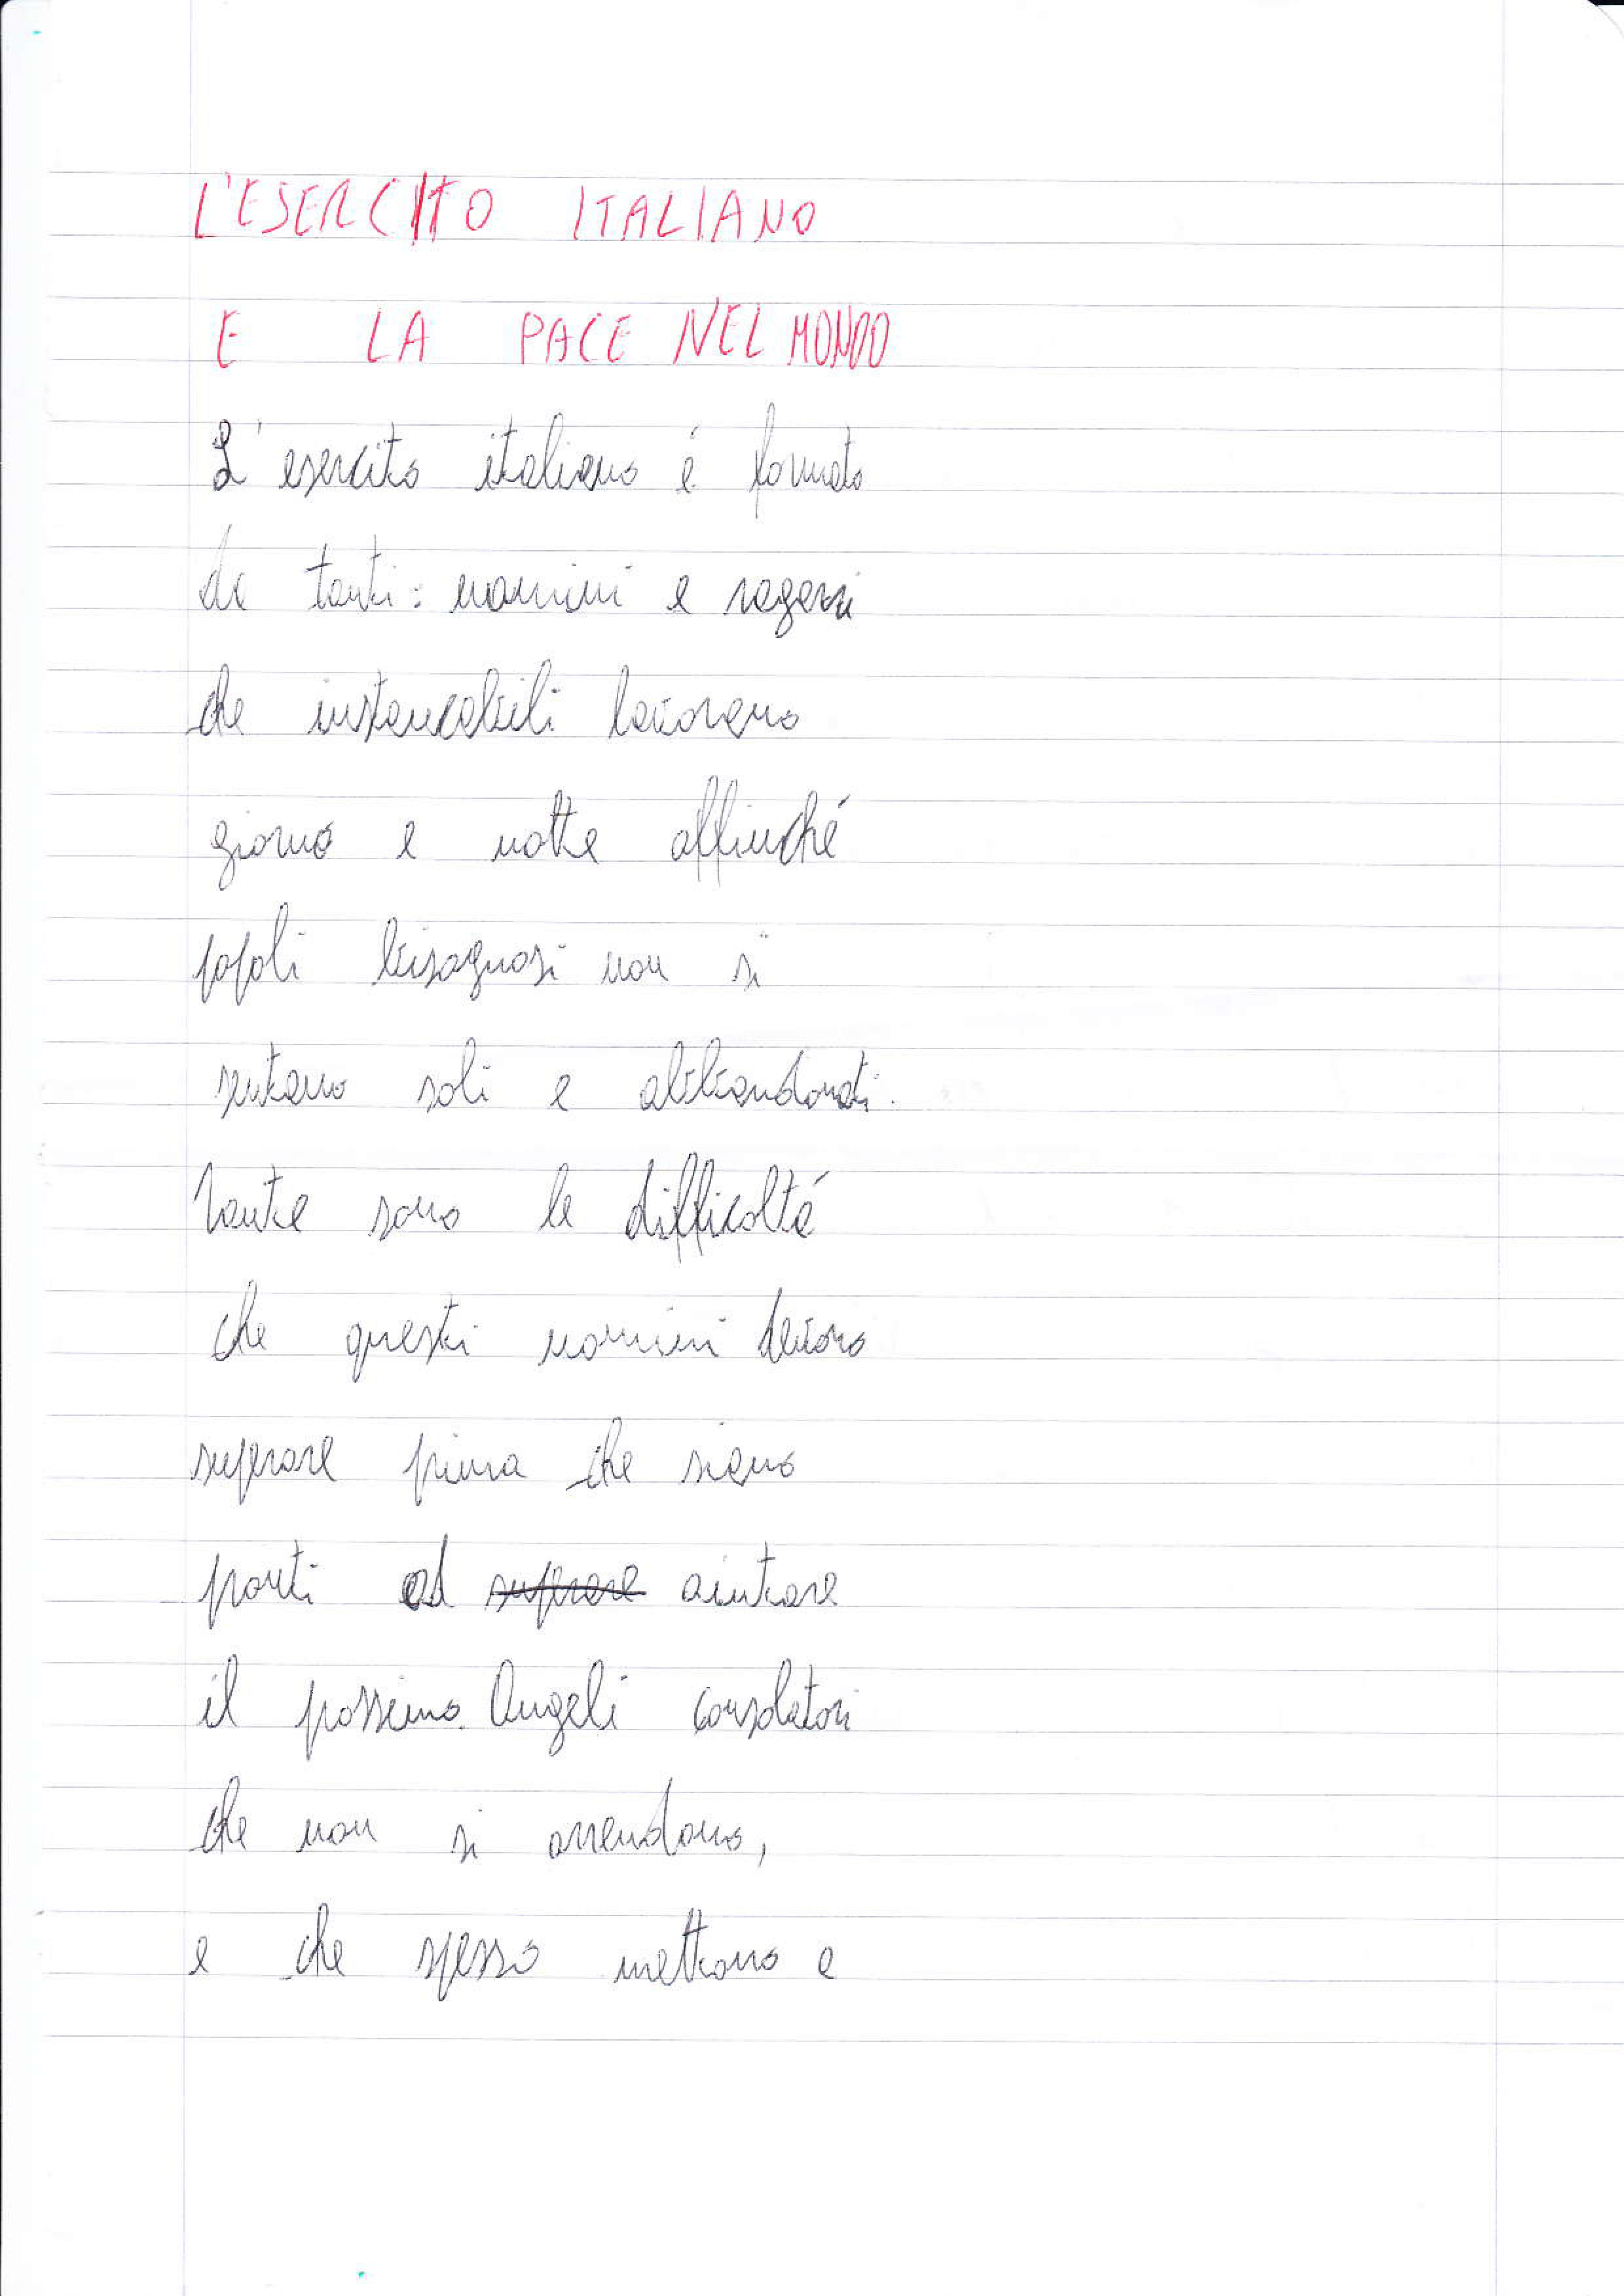 L'ESERCITO ITALIANO
E LA PACE NEL MONDO
L'esercito italiano é formato
da tanti: uomini e ragazzi
che instancabili lavorano
giorno e notte affinché
popoli bisognosi non si
sentano soli e abbandonati.
Tante sono le difficoltá
che questi uomini devono
superare prima che siano
pronti ad superare aiutare
il possimo. Angeli consolatori
che non si arrendono,
e che spesso mettono a